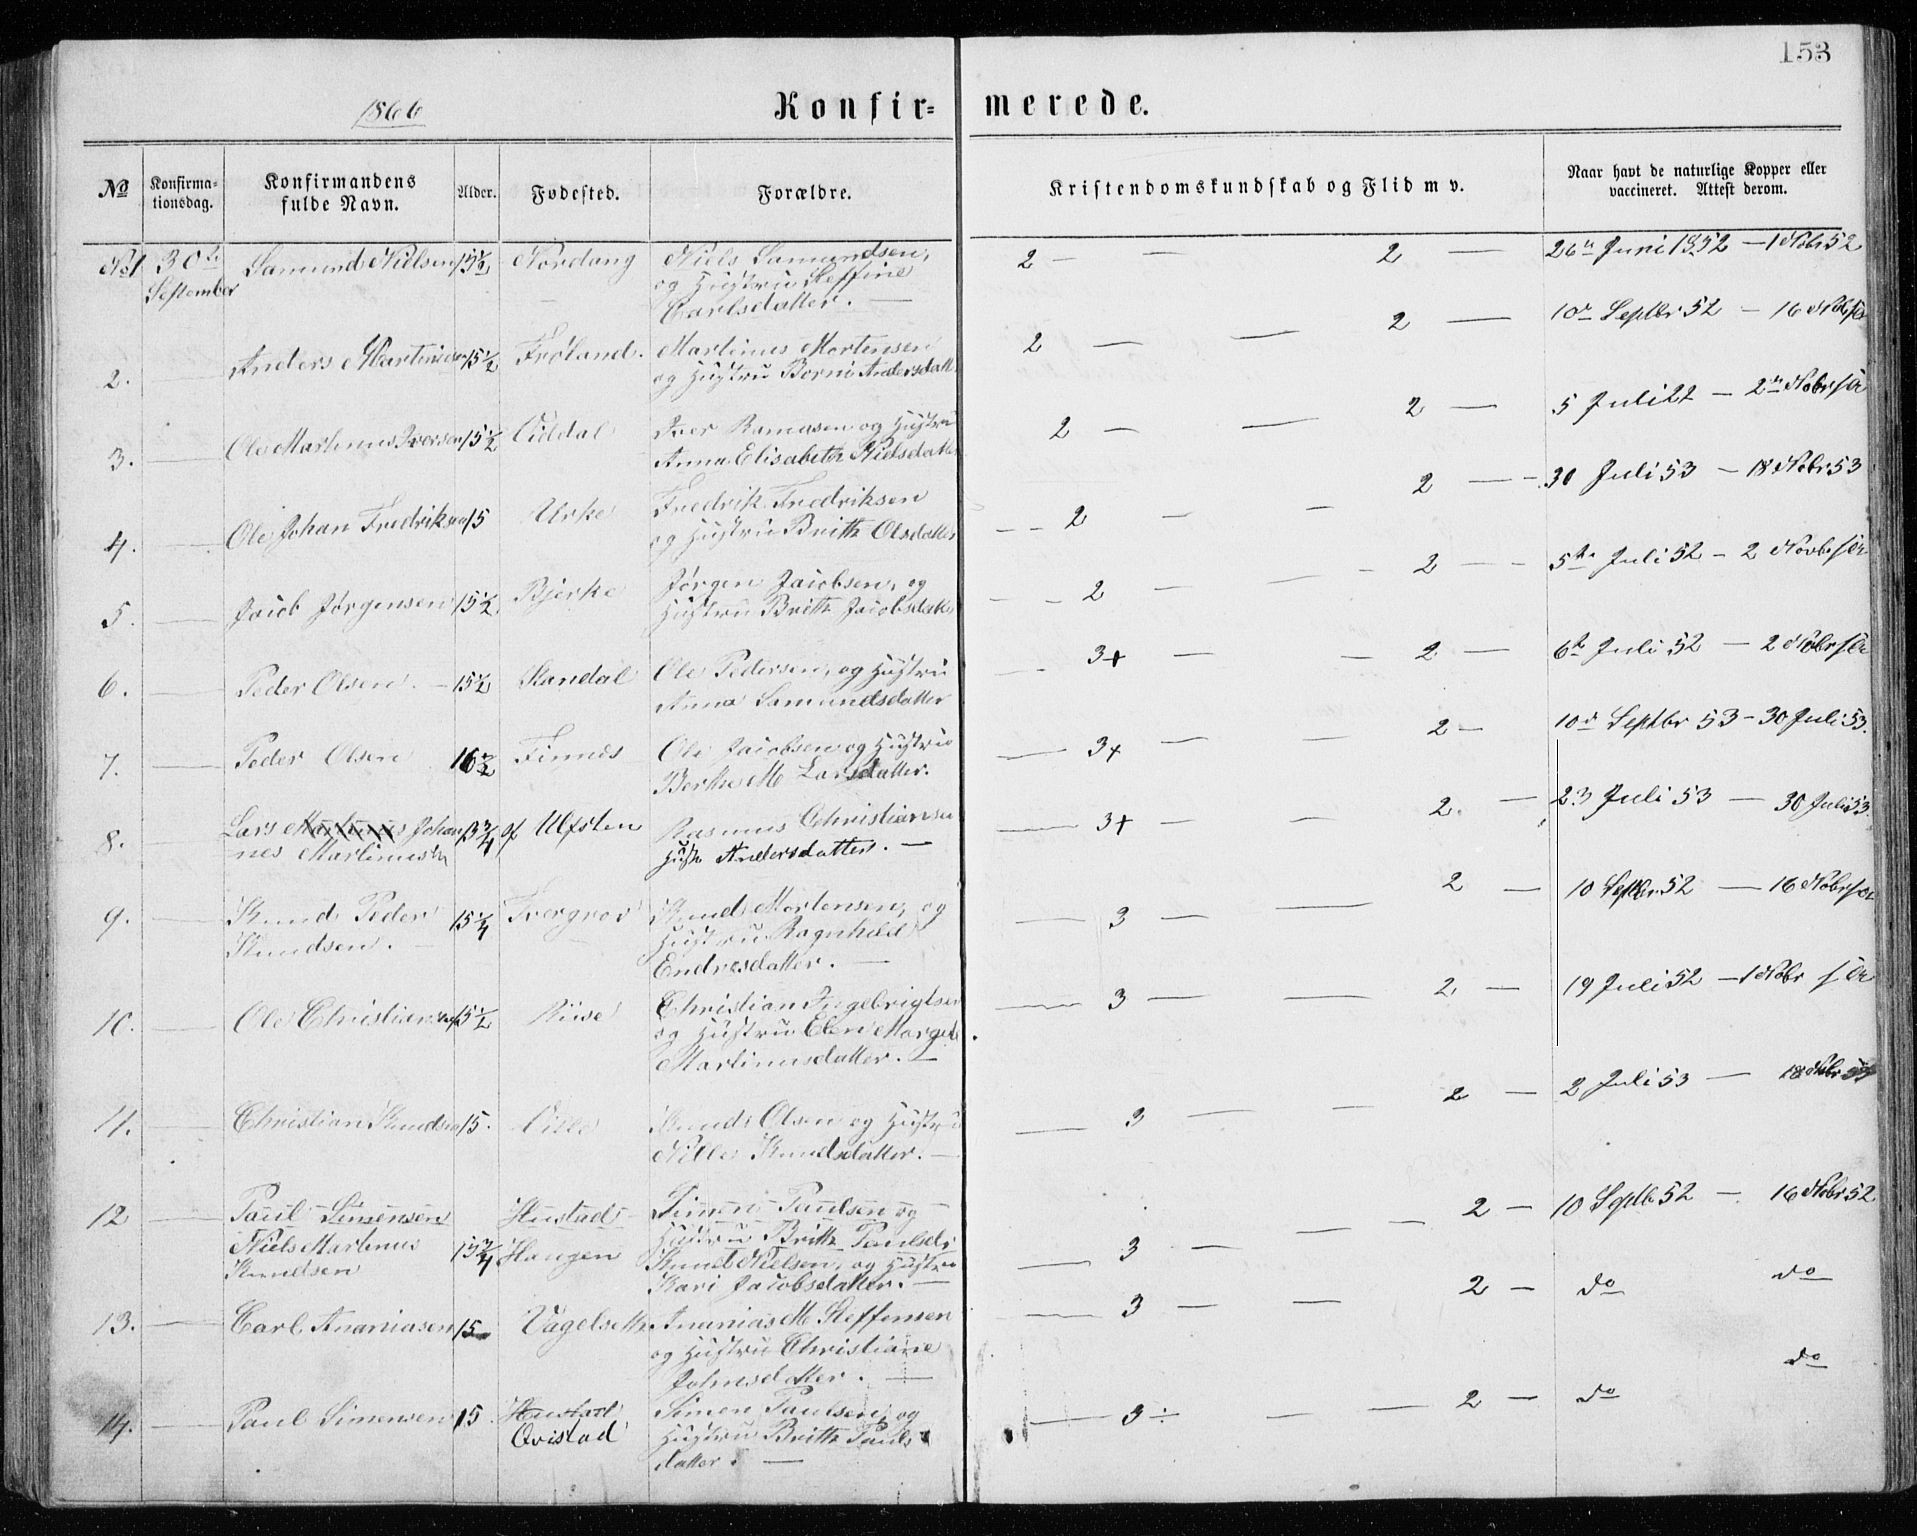 153
1866
Konfir= merede.
No
Konfirma=
tionsdag.
Konfirmandens
fulde Navn.
Alder.
Fodested.
Forældre.
Kristendomskundskab og Flid m v.
Naar havt de naturlige Kopper eller
vaccineret. Attest derom.
No 1 30te Samund Nielsen 15½ Nordang Niels Samundsen, 2 — 2 — 26de Juni 1852 — 1 Nobr 52
September og Hustru Steffine
Carlsdatter. —
2. — Anders Martinusen 15½ Frøland. Martinus Mortensen 2 — — 2 — 10de Septbr 52 — 16 Nobr s. a.
og Hustru Berni Andersdatt
3. — Ole Martinus Iversen 15½ Viddal Iver Ramusen og Hustru 2 — — 2 — 5 Juli 52 — 2den Nobr s. a.
Anna Elisabeth Nielsdatter
4. — Ole Johan Fredriksen 15 Urke Fredrik Fredriksen — 2 — — 2 — 30 Juli 53 — 18 Nobr 53
og Hustru Brith Olsdatter
5. — Jacob Jørgensen 15½ Bjerke Jørgen Jacobsen, og — 2 — — 2 — 5te Juli 52 — 2 Novb. s. a.
Hustru Brith Jacobsdatt
6. — Peder Olsen. — 15½ Standal Ole Pedersen, og Hustru — 3+ — — 2 — 6te Juli 52 — 2 Nobr s. a.
Anna Samundsdatter
7. — Peder Olsen 16½ Finnes Ole Jacobsen og Hustru — 3+ — — 2 — 10de Septbr 53 — 30 Juli 53.
Berthe M Larsdatter.
8. — Lars Martinus Johan of Ulfsten Rasmus Christiansen — 3+ — — 2. — 23 Juli 53 — 30 Juli 53.
nes Martinussen Hustr Andersdatter. —
9. — Knud Peder 15¼ Tvergrov Knud Mortensen, og — 3 — — 2 — 10 Septbr. 52 — 16 Nobr s. a.
Knudsen. — Hustru Ragnhild
Endresdatter. —
10. — Ole Christiansen 15½ Riise Christian Ingebrigtsen — 3 — — 2 — 19 Juli 52 — 1 Nobr s. a.
og Hustru Elen Margrete
Martinusdatter. —
11. — Christian Knudsen 15. Knud Olsen og Hustru — 3 — — 2 — 2 Juli 53 — 18 Nobr 53
Nille Knudsdatter. —
12 — Paul Simensen Hustad Simen Paulsen og 2 — 10 Septb 52 — 16 Nobr 52
Niels Martinus 15¾ Haugen Hustru Brith Paulsd: — 3 — —
Knudsen Knud Nielsen, og Hustru
Kari Jacobsdatter. —
13. — Carl Ananiasen 15 Vagelseth Ananias M Steffensen — 3 — — 2 — do do
og Hustru Christiane
Johnsdatter. —
14. — Paul Simensen 15 Hustad Simen Paulsen, og — 3÷ — — 2 — do do
Qvistad Hustru Brith Pauls
datter. —